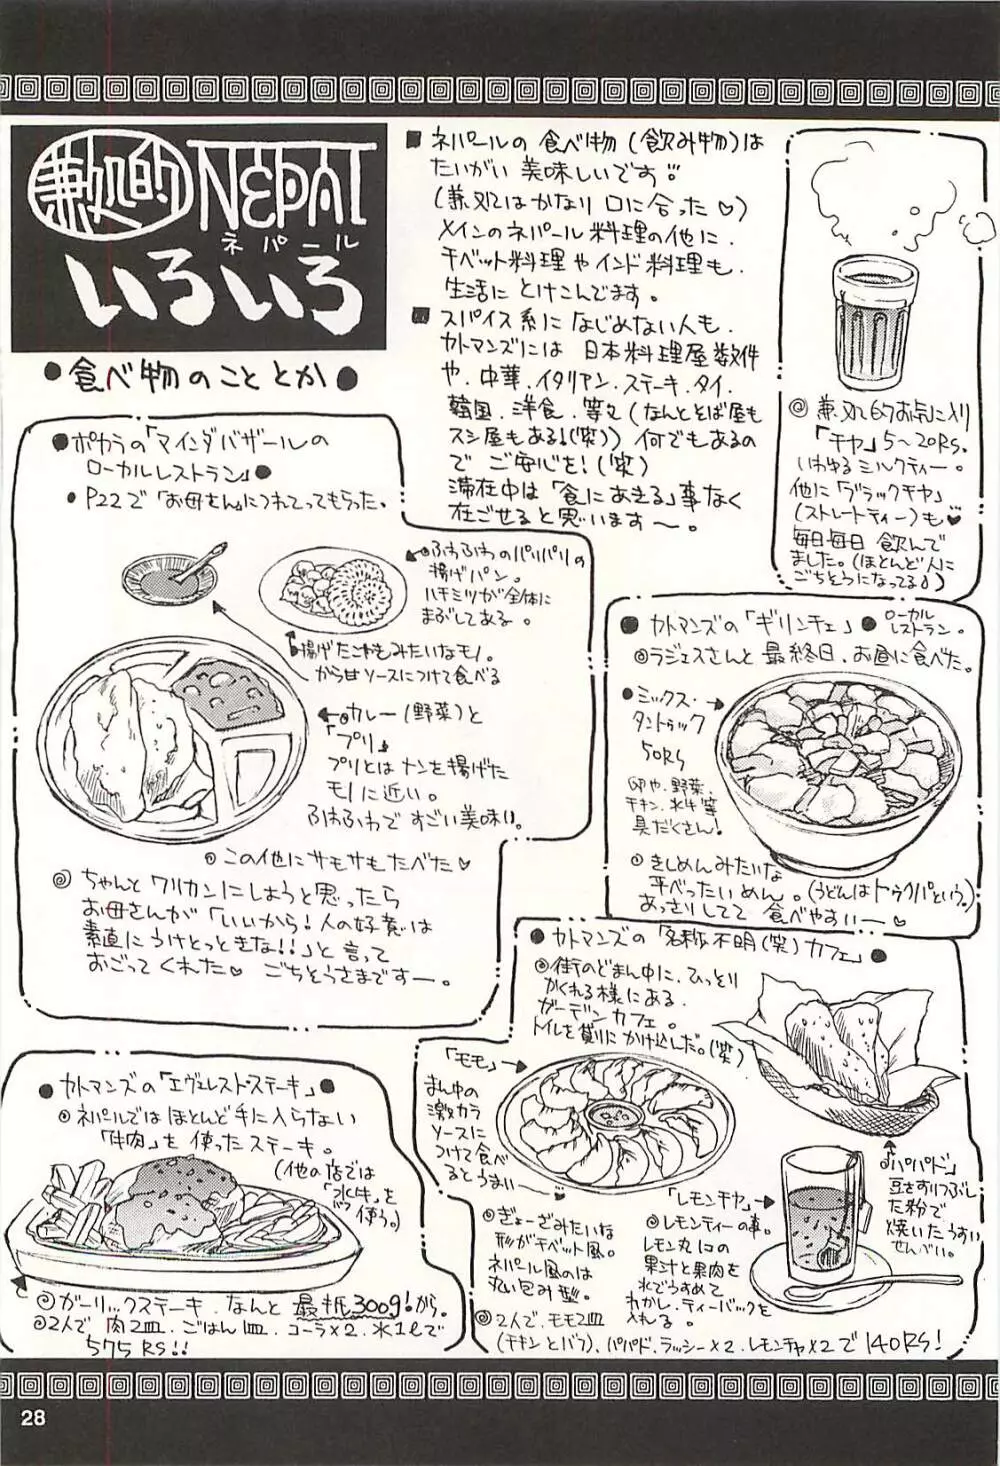 兼処的 NEPAL
ネパール
いろいろ
●食べ物のこととか●
■ネパールの食べ物(飲み物)は
たいがい美味しいです
(兼処はかなり口に合った♡)
メインのネパール料理の他に、
チベット料理やインド料理も、
生活にとけこんでます。
■スパイス系になじめない人も、
カトマンズには日本料理屋数件
や、中華、イタリアン、ステーキ、タイ、
韓国、洋食、等々(なんとそば屋も
スシ屋もある!(笑))何でもあるの
でご安心を!(笑)
滞在中は「食にあきる」事なく
在ごせると思います〜。
◎兼処的お気に入り
「チヤ」5〜20RS.
いわゆるミルクティー。
他に「ブラックチヤ」
(ストレートティー)も♥
毎日毎日飲んで
ました。(ほとんど人に
ごちそうになってる♪)
●ポカラの「マインダバザールの
ローカルレストラン」●
•P22で「お母さん」につれてってもらった。
ふわふわのパリパリの
揚げパン。
ハチミツが全体に
まぶしてある。
揚げたこやきみたいなモノ。
から甘ソースにつけて食べる
カレー(野菜)と
「プリ」
プリとはナンを揚げた
モノに近い。
ふわふわですごい美味い。
◎この他にサモサもたべた♥
◎ちゃんとワリカンにしようと思ったら
お母さんが「いいから!人の好意は
素直にうけとっときな!!」と言って
おごってくれた♥ ごちそうさまです〜。
●カトマンズの「ギリンチェ」● ローカル
レストラン。
◎ラジェスさんと最終日、お昼に食べた。
●ミックス・
タントゥック
50RS
卵や、野菜、
チキン、水牛等
具だくさん!
◎きしめんみたいな
平べったいめん。(うどんはトゥクパという。)
あっさりしてて食べやすい〜♡
●カトマンズの「名称不明(笑)カフェ」●
◎街のどまん中に、ひっそり
かくれる様にある
ガーデンカフェ。
トイレを借りにかけ込んだ。(笑)
「モモ」→
まん中の
激カラ
ソースに
つけて食べ
るとうまい〜
◎ぎょーざみたいな
形がチベット風。
ネパール風のは
丸い包み型。
「レモンチヤ」→
◎レモンティーの事。
レモン丸1コの
果汁と果肉を
水でうすめて
わかし、ティーバックを
入れる。
「パパド」
豆をすりつぶし
た粉で
焼いたうすい
せんべい。
◎2人で、モモ2皿
(チキンとバフ)、パパド、ラッシー×2、レモンチャ×2で140RS!
●カトマンズの「エヴェレスト・ステーキ」●
◎ネパールではほとんど手に入らない
「牛肉」を使ったステーキ。
(他の店では
「水牛」を
使う。)
◎ガーリックステーキ、なんと最低300g!から。
◎2人で肉2皿、ごはん1皿、コーラ×2、水1ℓで
575RS!!
28